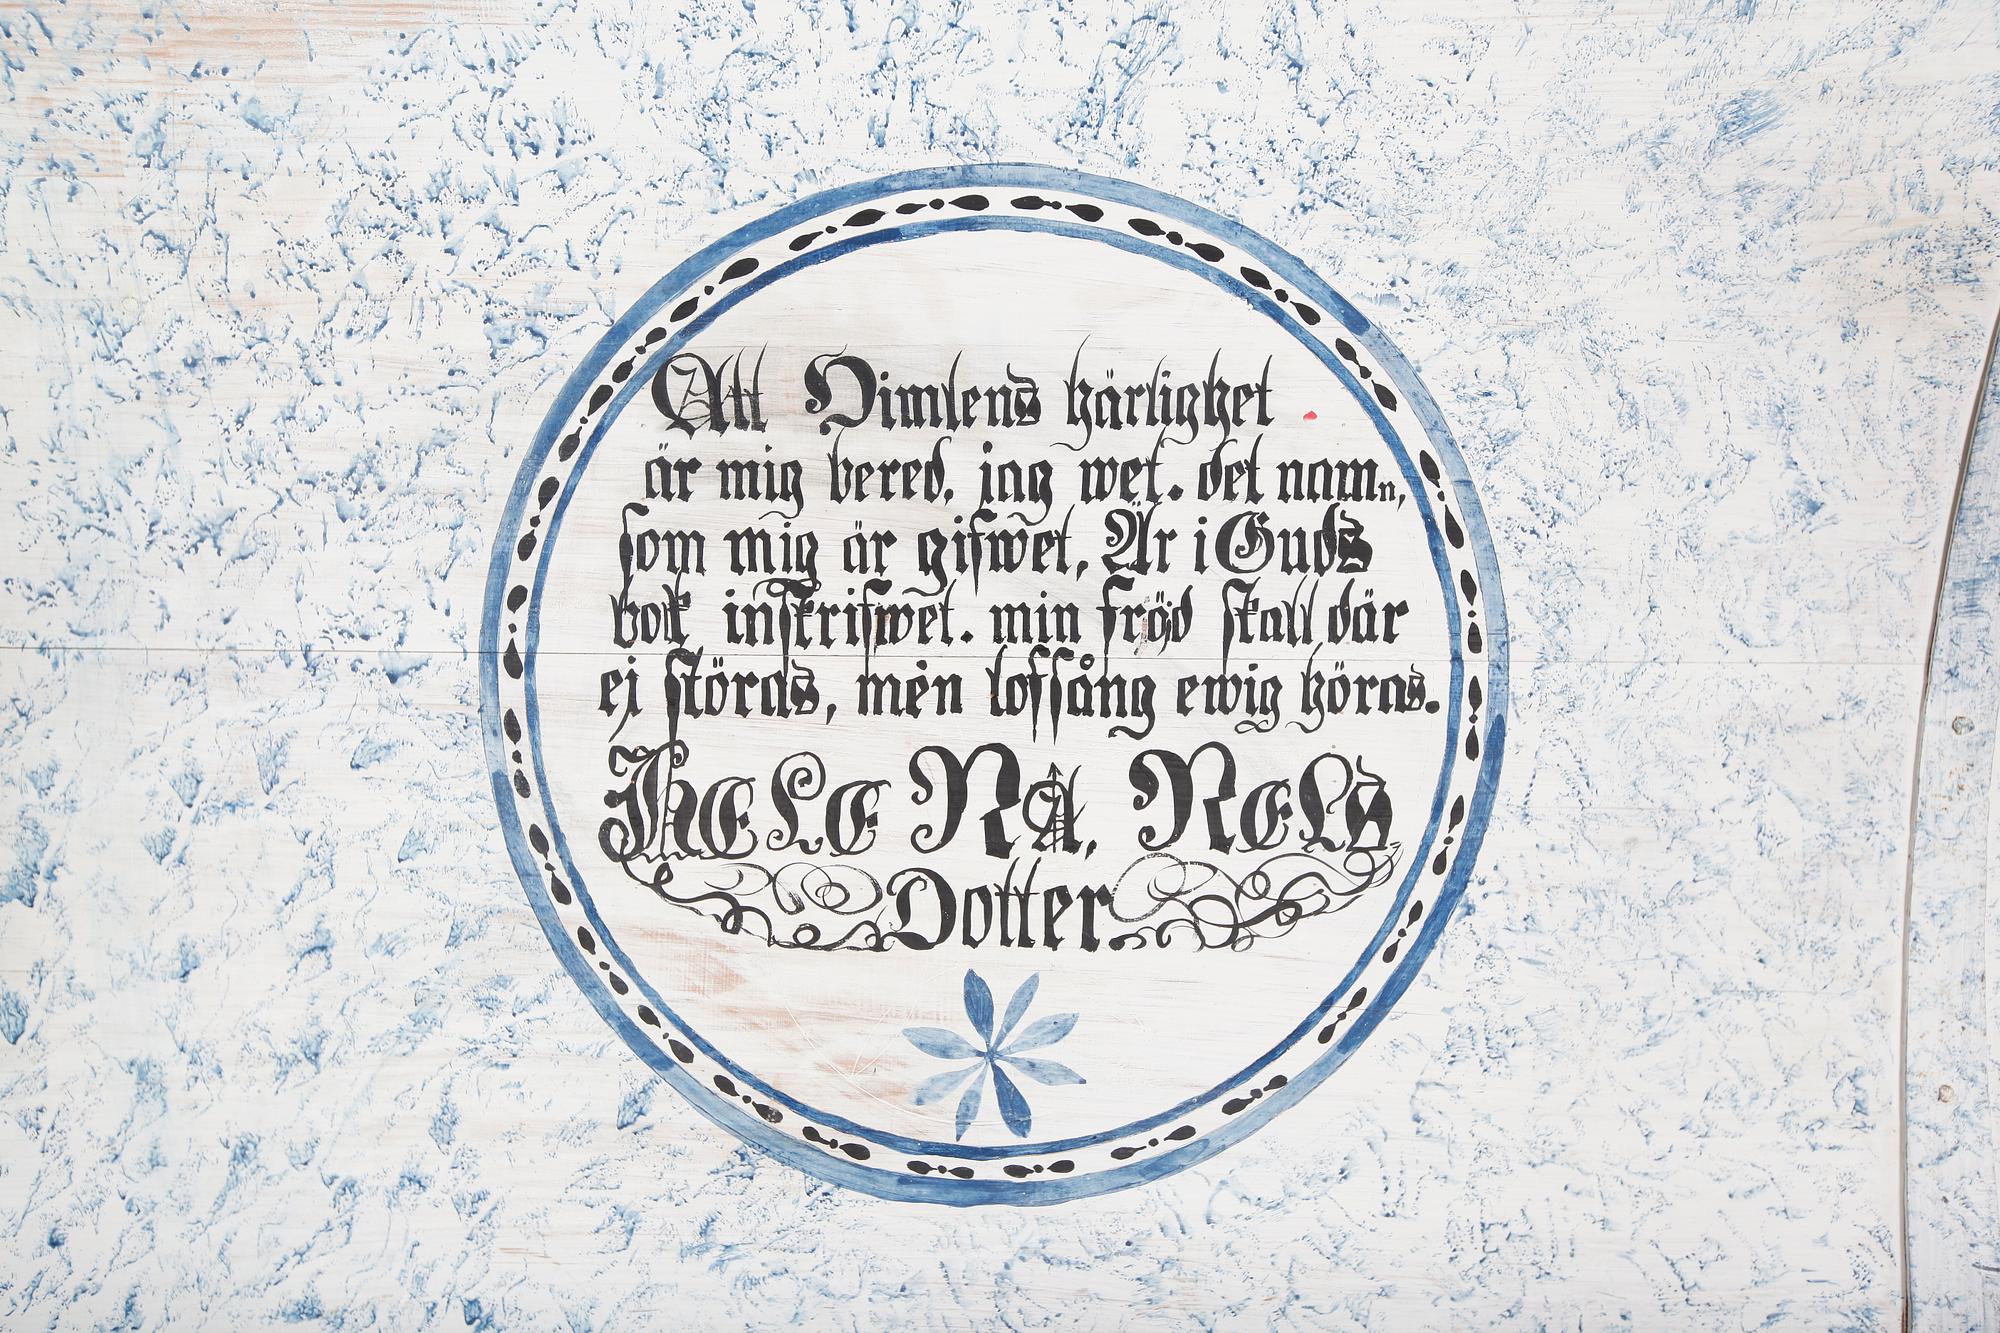 Att Himlens härlighet
är mig bered. jag wet. det namn,
som mig är gifwet, Är i Guds
bok inskrifwet. min fröd skall där
ej störas, men lofsång ewig höras.
HELENA. NELS
Dotter